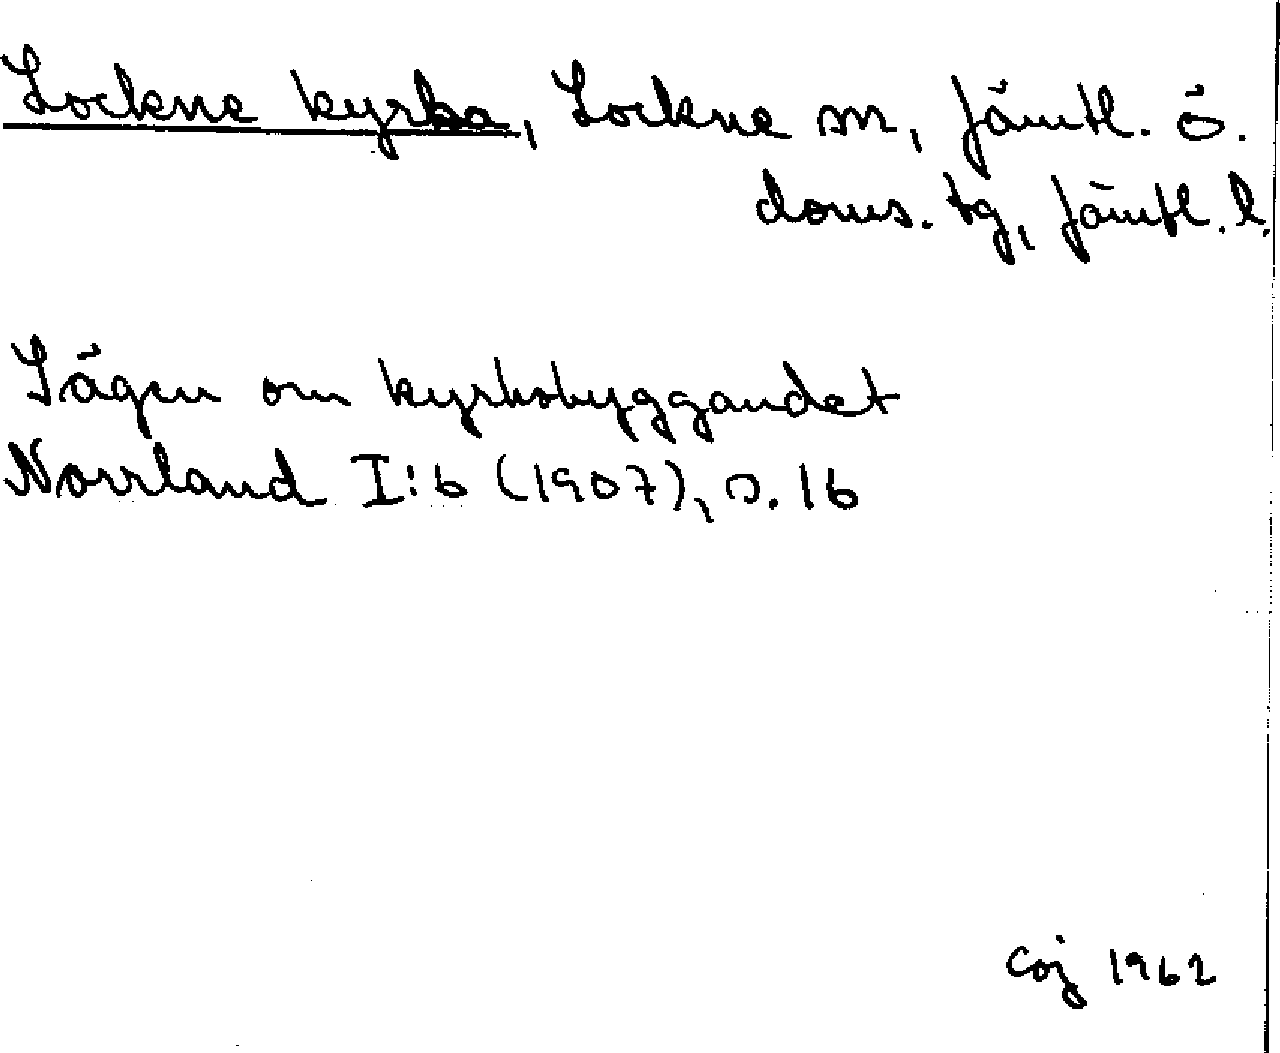 Lockne kyrka, Lockne sn, Jämtl. ö.
doms. tg, Jämtl. l.
Sägen om kyrkobyggandet
Norrland I:6 (1907), s. 16
Coj 1962